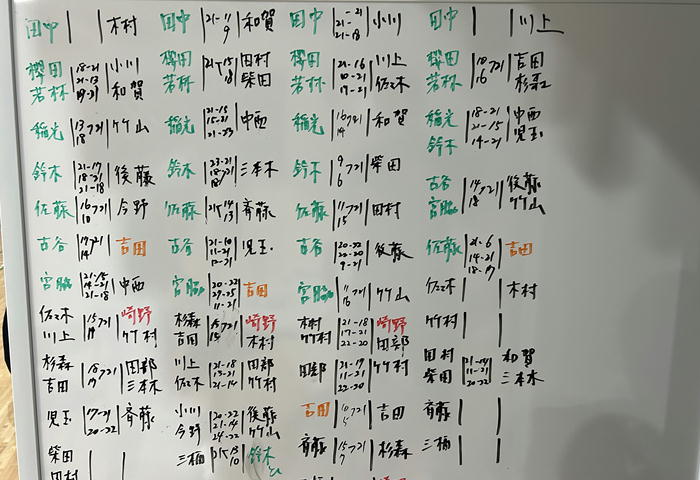 田中 | | 木村
田中 |21-11 9| 和賀
田中 21-18 | 小川
田中 | | 川上
櫻田 若林 |18-21 21-13 | 小川 和賀
櫻田 若林 |21 15 18| 田村 柴田
櫻田 若林 |21-16 10-21 19-21| 川上 佐々木
櫻田 若林 |10 16 21| 吉田 杉森
稲光 |13 18 21| 竹山
稲光 |21-15 15-21 21-23| 中西
稲光 |16 14 21| 和賀
稲光 鈴木 |18-21 21-15 14-21| 中西 児玉
鈴木 |21-17 18-21 21-18| 後藤
鈴木 |23-21 18-21| 三本木
鈴木 |9 6 21| 柴田
古谷 宮脇 |14 18 21| 後藤 竹山
佐藤 |16 21| 今野
佐藤 |21 14 13| 斉藤
佐藤 |11 15 21| 田村
佐藤 |21-6 14-21 18-| 吉田
古谷 |14 21| 吉田
古谷 |21-10 11-21| 児玉
古谷 |20-22 22-20 9-21| 後藤
宮脇 |21-15 14-21 21-18| 中西
宮脇 |20-22 27-25 11-21| 吉田
宮脇 |11 16 21| 竹山
佐々木 | | 木村
佐々木 川上 |15 21| 崎野 竹村
杉森 吉田 |15 21| 崎野 木村
木村 竹村 |21-18 17-21 22-20| 崎野 田部
竹村 | |
杉森 吉田 |18 21| 田部 三本木
川上 佐々木 |21-18 15-21 21-14| 田部 竹村
田部 |21-17 11-21 22-20| 竹村
田村 柴田 |21-14 11-21 20-22| 和賀 三本木
児玉 |17-21 20-22| 斉藤
小川 今野 |20-22 21-14 24-22| 後藤 竹山
吉田 |10 21| 吉田
斉藤 | |
柴田 田村 | |
三栖 |21 13 10| 鈴木
斉藤 |15 7 21| 杉森
三栖 | |